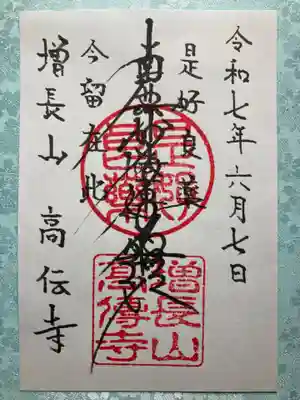 令和七年六月七日
是好良薬
南無妙法蓮華経
今留在此
増長山 高伝寺
增長山
高傳寺